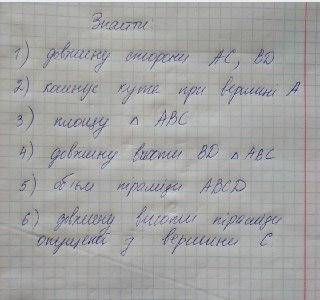 Знайти:
1) довжину сторони AC, BD
2) косинус кута при вершині A
3) площу △ ABC
4) довжину висоти BD △ ABC
5) об'єм піраміди ABCD
6) довжину висоти піраміди
опущеної з вершини C